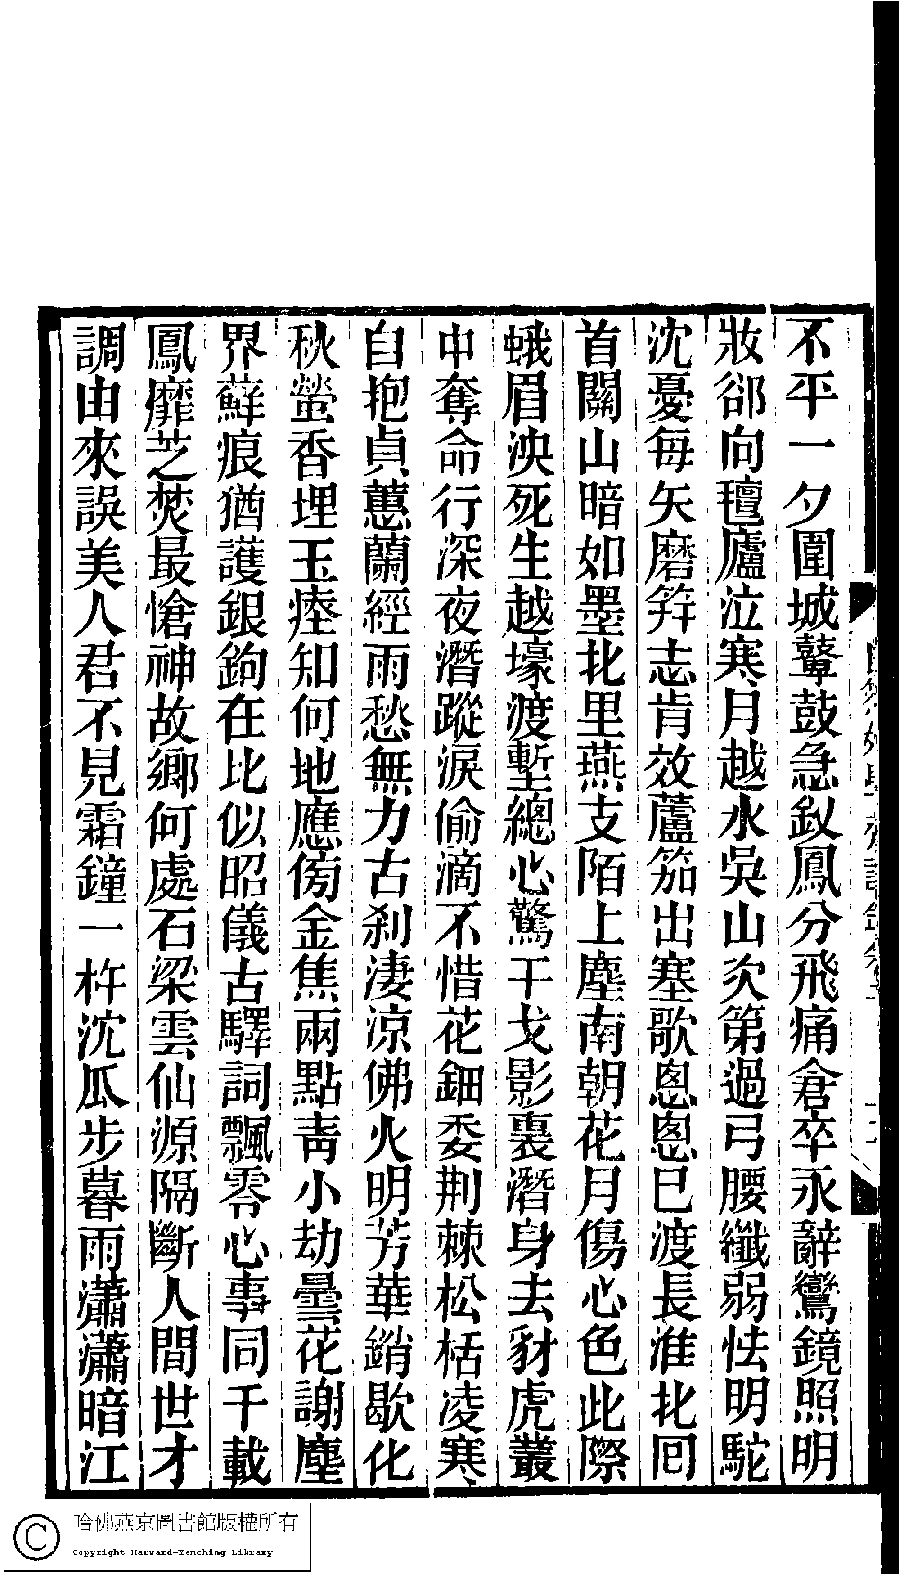 不平一夕圍城鼙鼓急釵鳳分飛痛倉卒永辭鸞鏡照明
妝郤向氊廬泣寒月越水吳山次第過弓腰纖弱怯明駝
沈憂每矢磨笄志肯效蘆笳出塞歌悤悤已渡長淮北囘
首關山暗如墨北里燕支陌上塵南朝花月傷心色此際
蛾眉泱死生越壕渡塹總心驚干戈影裏潛身去豺虎叢
中奪命行深夜潛蹤淚偷滴不惜花鈿委荆棘松栝凌寒
自抱貞蕙蘭經雨愁無力古刹淒涼佛火明芳華銷歇化
秋螢香埋玉瘞知何地應傍金焦兩點靑小劫曇花謝塵
界蘚痕猶護銀鉤在比似昭儀古驛詞飄零心事同千載
鳳靡芝焚最愴神故鄉何處石梁雲仙源隔斷人間世才
調由來誤美人君不見霜鐘一杵沈瓜步暮雨瀟瀟暗江
哈佛燕京圖書館版權所有
Copyright Harvard-Yenching Library